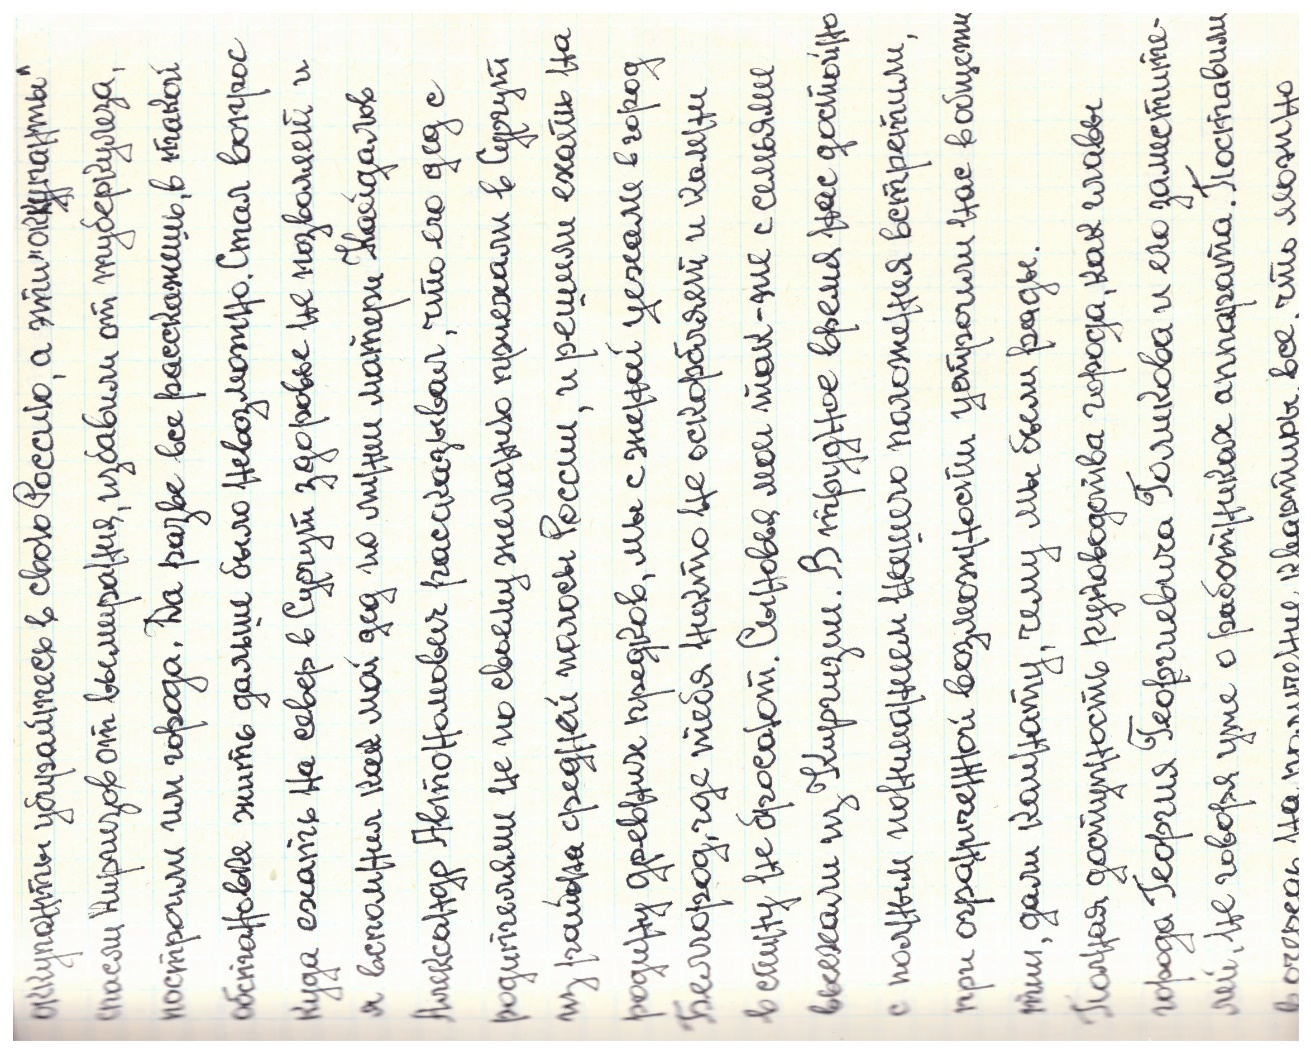 оккупанты убирайтесь в свою Россию, а эти "оккупанты"
спасли Киргизов от вымирания, избавили от туберкулеза,
построили им города. Да разве все расскажешь, в такой
обстановке жить дальше было невозможно. Стал вопрос
куда ехать на север в Сургут здоровье не позволяет и
я вспомнил как мой дед по линии матери Кайдалов
Александр Автономович рассказывал, что его дед с
родителями не по своему желанию приехали в Сургут
из района средней полосы России, и решили ехать на
родину древних предков, мы с женой уехали в город
Белгород, где тебя никто не оскорблят и камни
в спину не бросают. Сыновья мои так-же с семьями
выехали из Киргизии. В трудное время нас достойно
с полным пониманием нашего положения встретили,
при ограниченной возможности устроили нас в общежи
тии, дали комнату, чему мы были рады.
Полная доступность руководства города, как главы
города Георгия Георгиевича Голикова и его заместите-
лей, не говоря уже о работниках аппарата. Поставили
в очередь на получение квартиры, все, что можно